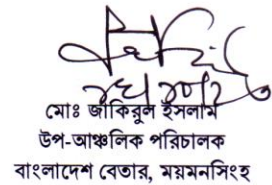 মোঃ জাকিরুল ইসলাম
উপ-আঞ্চলিক পরিচালক
বাংলাদেশ বেতার, ময়মনসিংহ